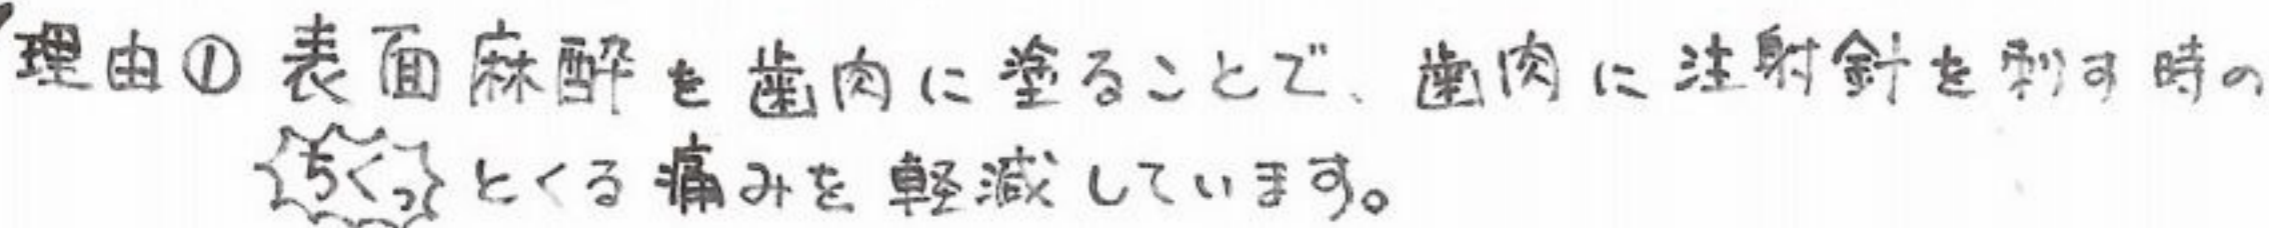 理由① 表面麻酔を歯肉に塗ることで、歯肉に注射針を刺す時の
ちくっとくる痛みを軽減しています。